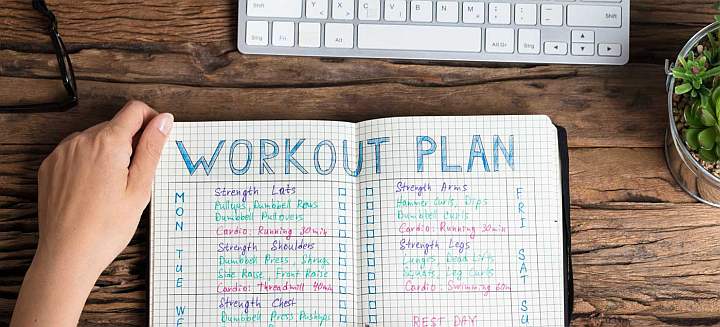 Y X C V B N M ; : _ Shift
Strg Alt Alt Gr Strg
WORKOUT PLAN
MON
Strength Lats
Pullups, Dumbbell Rows
Dumbbell Pullovers
Cardio: Running 30min
TUE
Strength Shoulders
Dumbbell Press, Shrugs
Side Raise, Front Raise
Cardio: Threadmill 40min
WE
Strength Chest
Dumbbell Press Pushups
FRI
Strength Arms
Hammer Curls, Dips
Dumbbell Curls
Cardio: Running 30min
SAT
Strength Legs
Lunges, Dead Lifts
Squats, Leg Curls
Cardio: Swimming 60m
SU
REST DAY